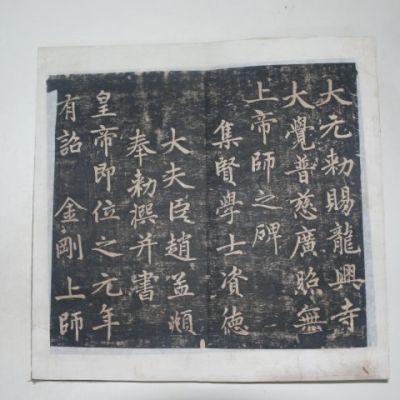 大元勅賜龍興寺
大覺普慈廣照無
上帝師之碑
集賢學士資德
大夫臣趙孟頫
奉勅撰并書
皇帝即位之元年
有詔金剛上師